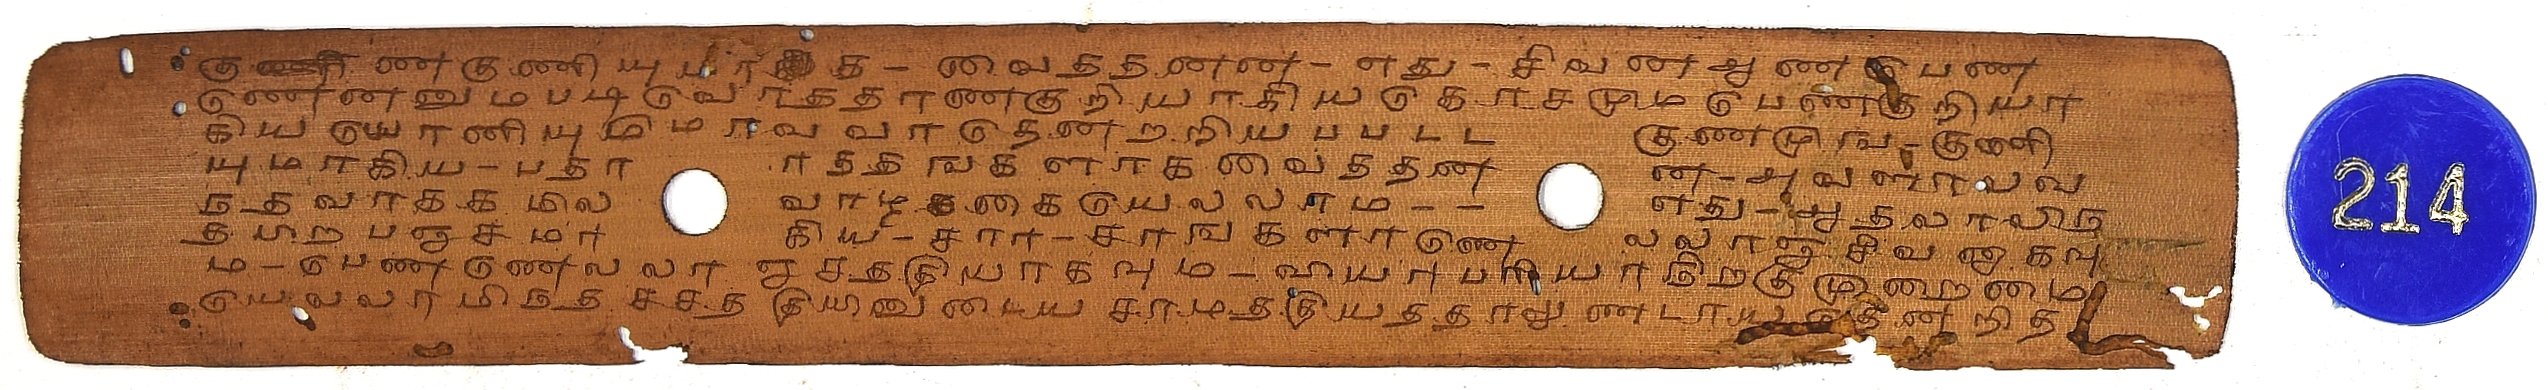 கு ணகுணியுமாகக - வைதததணன - எது - சிவன ஆண பெண
ணெனனுமபடி வோதததாணகுறியாகிய கோசமும பெணகுறியா
கிய யோனியுமிமாவவாதெனறறியபபடட குணமுங - குணி
யுமாகிய - பதாரததஙகளாக வைதததன ன - அவளாலவ
நதவாககமில வாழககையெலலாம - - எது - ஆதலாலிநத
தபிறபஞசமாகிய - சரா - சரஙகளாணெ லலாஞசிவனுகவு
ம - பெணணெலலாஞசததியாகவும - வியாபரியாநிறகுமுறைமை
யெலலாமிநதசசததியினுடைய சாமததியததாலுணடாயதெனறித
214